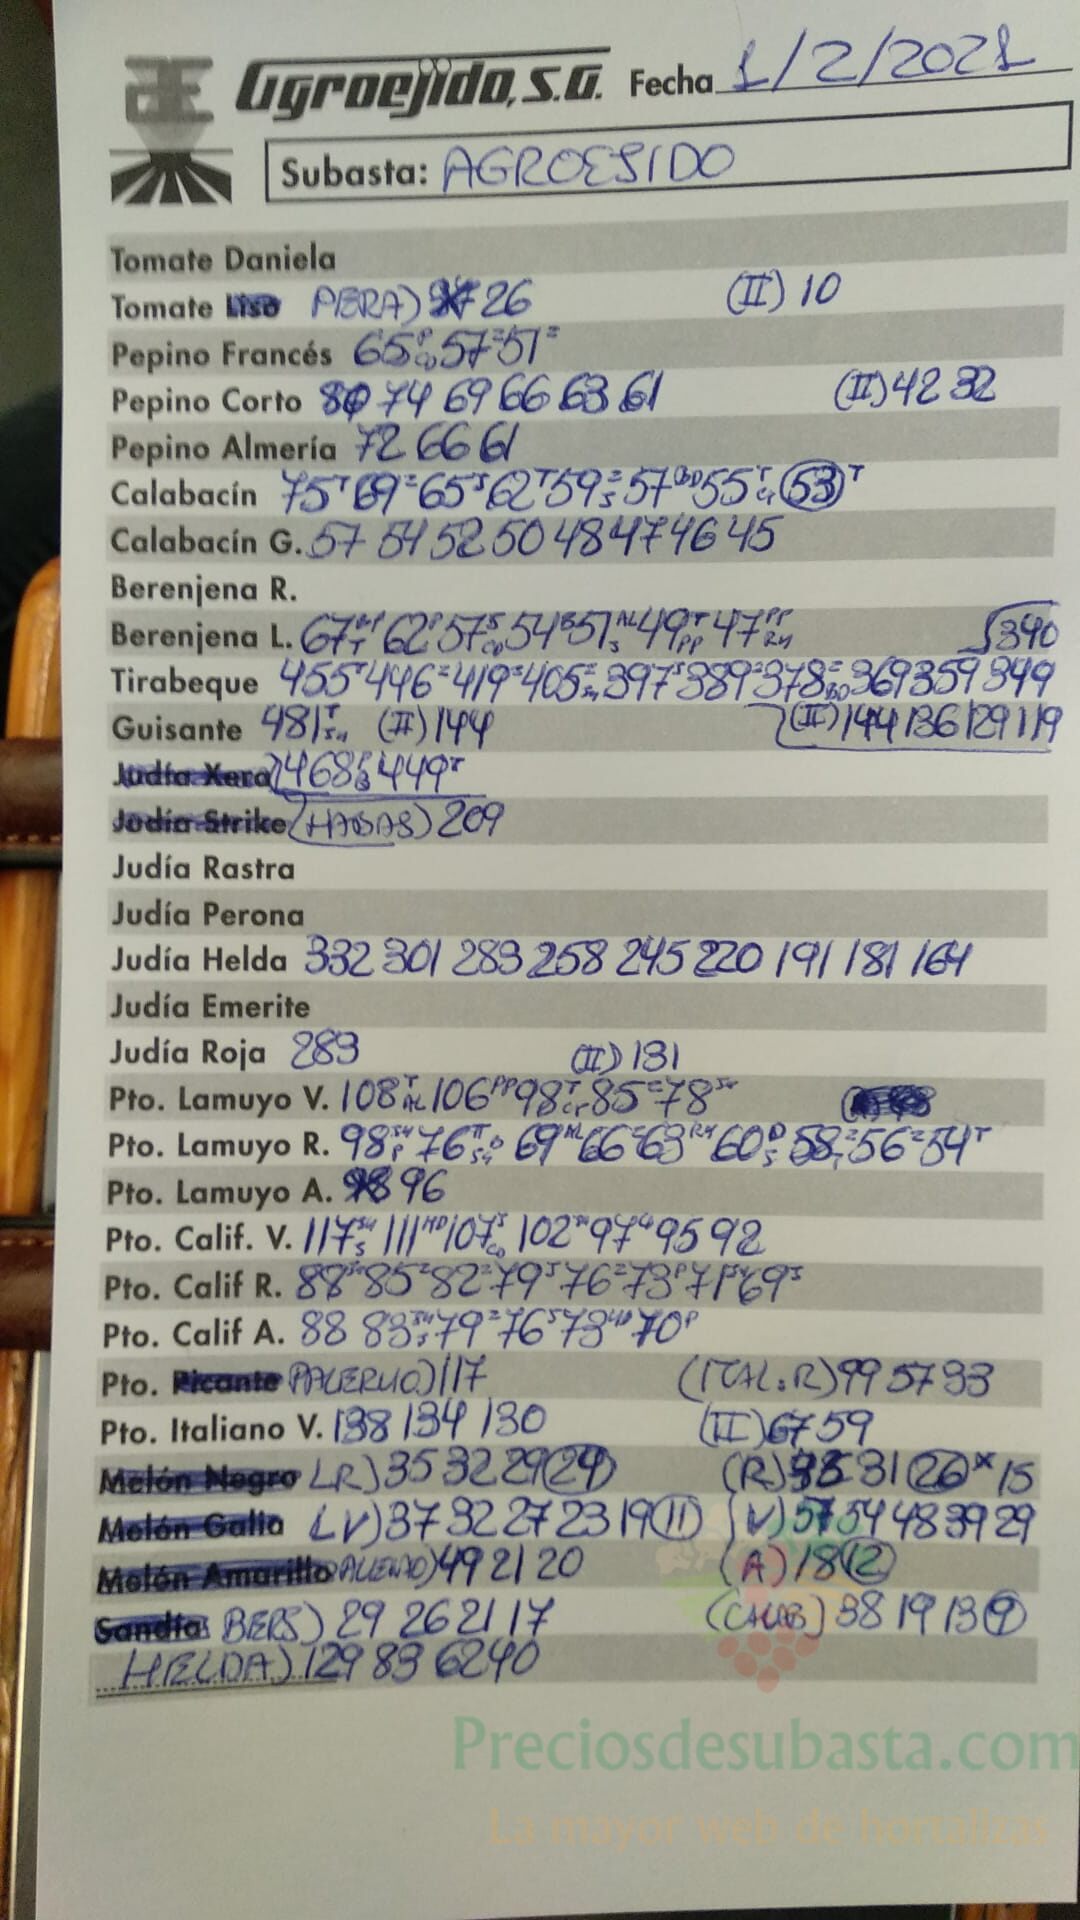 Agroejido, S.A. Fecha 1/2/2021
Subasta: AGROEJIDO
Tomate Daniela
Tomate Liso PERA) 26 (II) 10
Pepino Francés 65 57 51
Pepino Corto 80 74 69 66 63 61 (II) 42 32
Pepino Almería 72 66 61
Calabacín 75 69 65 62 59 57 55 53
Calabacín G. 57 54 52 50 48 47 46 45
Berenjena R.
Berenjena L. 67 62 57 54 51 49 47 340
Tirabeque 455 446 419 405 397 389 378 369 359 349
Guisante 481 (II) 144 (II) 144 136 129 119
Judía Xera 468 449
Judía Strike (HABAS) 209
Judía Rastra
Judía Perona
Judía Helda 332 301 283 258 245 220 191 181 164
Judía Emerite
Judía Roja 283 (II) 131
Pto. Lamuyo V. 108 106 98 85 78
Pto. Lamuyo R. 98 76 69 66 63 60 58 56 54
Pto. Lamuyo A. 96
Pto. Calif. V. 117 111 107 102 97 95 92
Pto. Calif R. 88 85 82 79 76 73 71 69
Pto. Calif A. 88 83 79 76 73 70
Pto. Picante PALERMO) 117 (ITAL:R) 99 57 33
Pto. Italiano V. 138 134 130 (II) 67 59
Melón Negro LR) 35 32 29 24 (R) 31 26 x 15
Melón Galia LV) 37 32 27 23 19 11 (V) 57 54 48 39 29
Melón Amarillo PALERMO) 49 21 20 (A) 18 12
Sandía BERJ) 29 26 21 17 (CALAB) 38 19 13 9
HELDA) 129 83 62 40
Preciosdesubasta.com
La mayor web de hortalizas